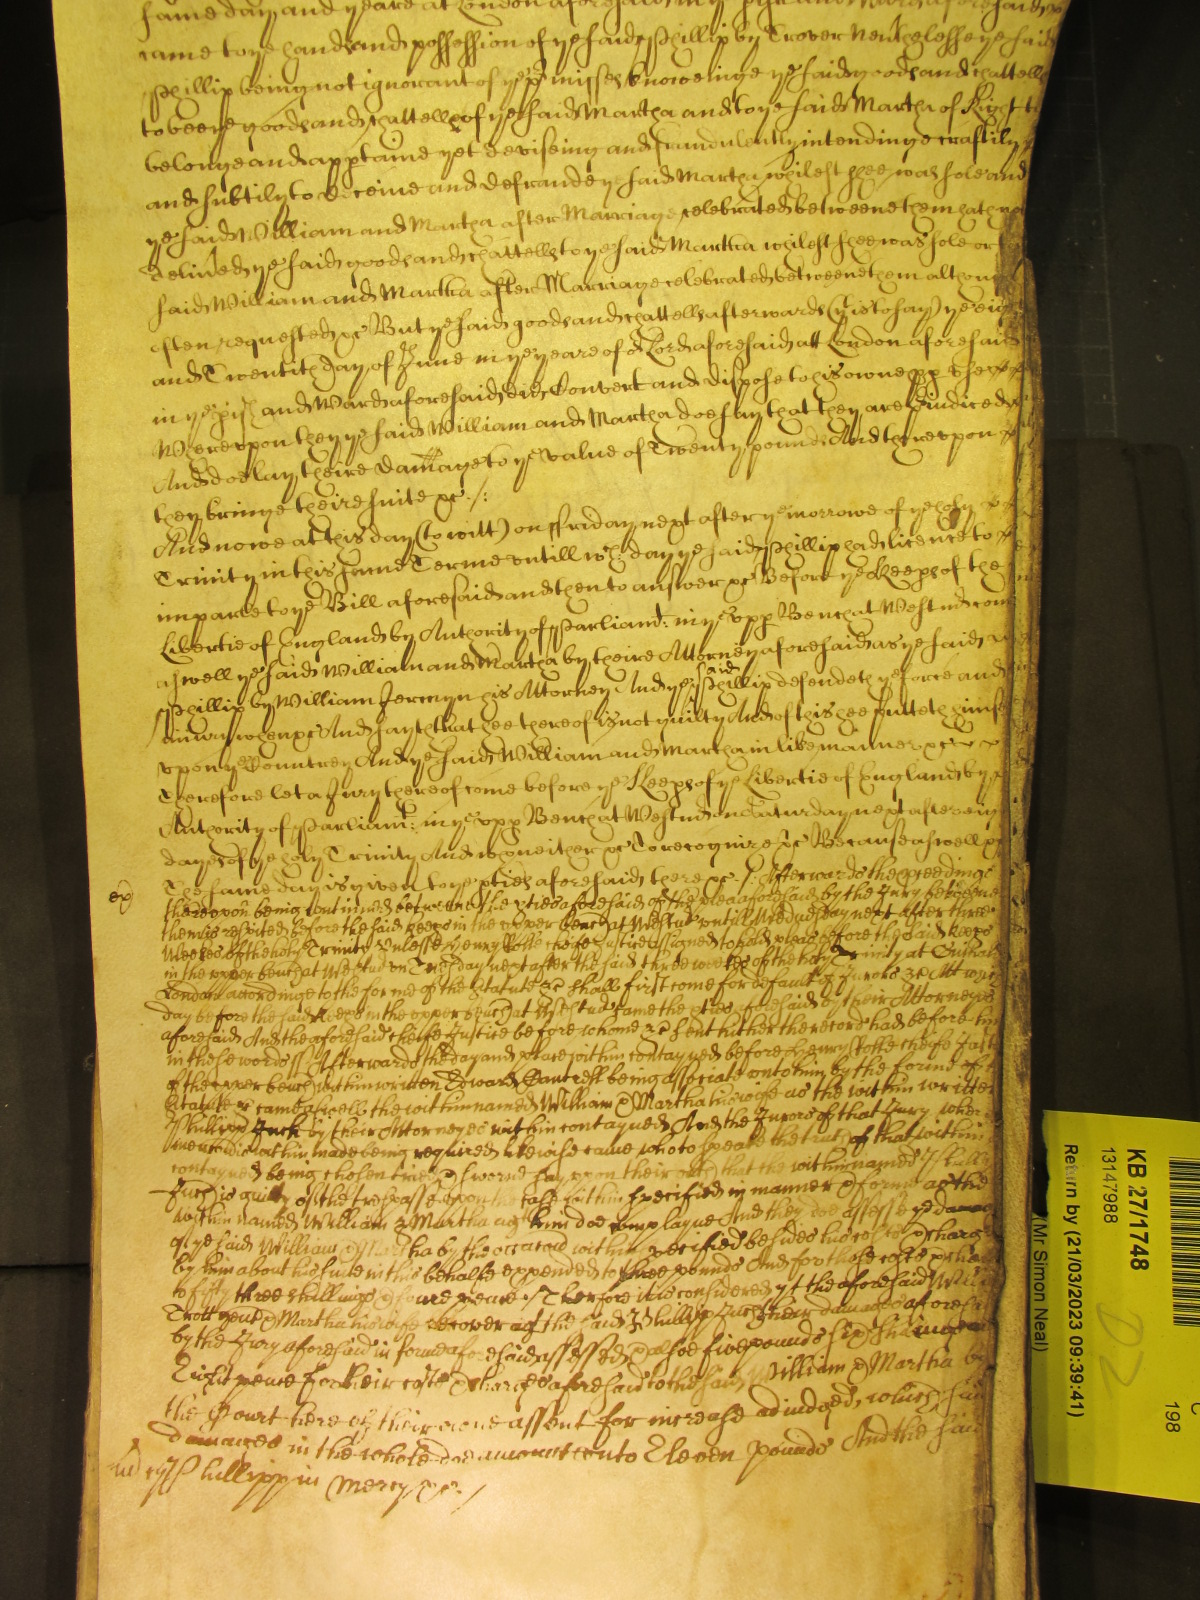 same day and yeare at London aforesaid in ye pish and Ward aforesaid
came to ye hands and possession of ye said Phillip by Trover Nevthelesse ye said
Phillip being not ignorant of ye pmisses knoweinge ye said goods and chattells
to bee ye goods and chattells of ye said Martha and to ye said Martha of Right to
belonge and apptaine yet deviseing and fraudulently intendinge craftily
and subtily to deceive and defraude ye said Martha whilest shee was sole and
ye said William and Martha after Marriage celebrated betweene them hath not
delived ye said goods and chattells to ye said Martha whilest shee was sole or
said William and Martha after Marriage celebrated betweene them althoug
often requested &c But ye said goods and chattells afterwards (yt is to say) ye eig
and Twentith day of June in ye yeare of or Lord aforesaid att London aforesaid
in ye pish and Ward aforesaid did Convert and dispose to his owne pp use
Whereupon they ye said William and Martha doe say that they are piudiced
And doe lay theire damage to ye value of Twenty pounds And thereupon
they bringe theire suite &c ./:
And nowe at this day (to witt) on Friday next after ye morrowe of ye holy
Trinity in this same Terme untill wch day ye said Phillip had licence to
imparle to ye Bill aforesaid and then to answer &c Before ye Keeps of the
Libertie of England by Authority of Parliamt: in ye upp Bench at Westm come
aswell ye said William and Martha by theire Attorney aforesaid as ye said
Phillip by William Jermyn his Attorney And ye said Phillip defendeth ye force and
iniury when &c And sayth that hee thereof is not guilty And of this hee putteth himse
upon ye Countrey And ye said William and Martha in like manner &c
Therefore let a Jury thereof come before ye Keeps of ye Libertie of England by
Authority of Parliamt: in ye upp Bench at Westm on Saturday next after
dayes of ye holy Trinity And who neither &c To recognize &c Because aswell
The same day is given to ye pties aforesaid there &c ./. Afterwards the pceedings
thereupon being continued betweene the pties aforesaid of the plea aforesaid by the Jury betweene
them is respited before the said keeps in the upper bench at Westm untill Wednesday next after three
Weekes of the holy Trinity Unlesse Henry Rolle cheife Justice assigned to hold pleas before the said keeps
in the upper bench at Westm on Tuesday next after the said three weekes of the holy Trinity at Guihal
London accordinge to the forme of the Statute &c shall first come for default of Jurors &c At wch
day before the said keeps in the upper bench at Westm came the pties aforesaid by their Attorneyes
aforesaid And the aforesaid cheife Justice before whome &c sent hither the record had before him
in these words ss Afterwards the day and place within contayned before Henry Rolle cheife Just
of the upper bench within written Edward Bancrofte being associate unto him by the forme of
Statute &c came aswell the within named William & Martha his wife as the within written
Phillipp Juch by their Attorneyes within contayned And the Jurors of that Jury wher
mencon is within made being required likewise came who to speake the truth of that within
contayned being chosen tried & sworne say upon their oath that the within named Phillip
Juch is guilty of the trespasse upon the case within specified in manner & forme as the
within named William & Martha agt him doe complayne And they doe assesse ye damag
of ye said William & Martha by the occacon within specified besides his costs & charg
by him about his suite in this behalfe expended to three pounds And for those costs & char
to fifty three shillings & foure pence ./ Therfore it is considered yt the aforesaid Willi
Trott gent & Martha his wife recover agt the said Phillip Juch their damages aforesai
by the Jury aforesaid in forme aforesaid assessed & alsoe five pounds six shillings
Eight pence for their costs & charges aforesaid to the said William & Martha by
the Court here of their owne assent for increase adiudged, which said
damages in the whole doe amount unto Eleven pounds And the said
Phillipp in mercy &c ./
KB 27/1748
13147988
Return by (21/03/2023 09:39:41)
(Mr Simon Neal)
198
D2